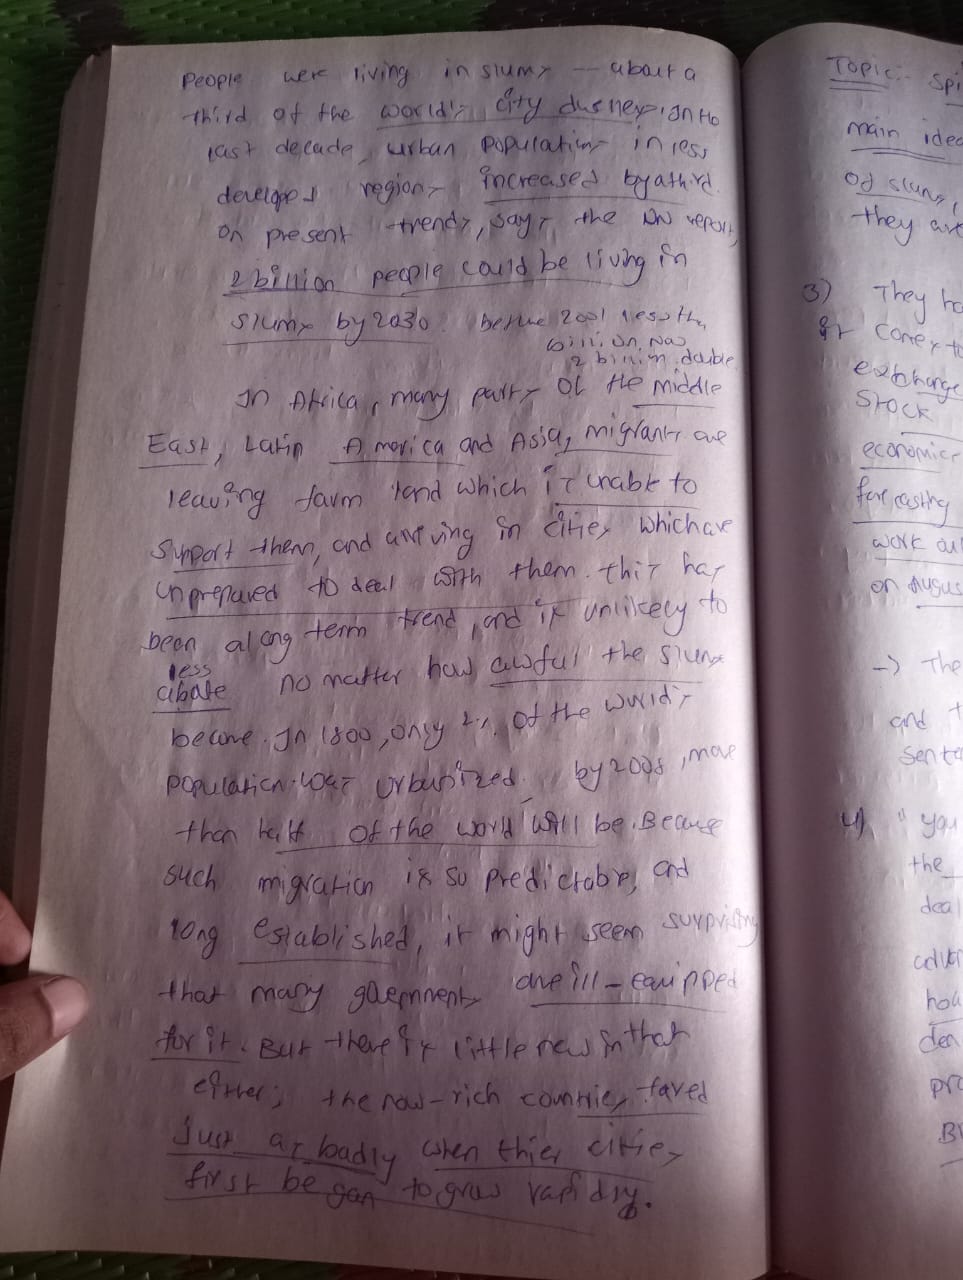 People were living in slums — about a
third of the world's city dusney, in the
last decade, urban populations in less
developed regions increased by a third.
on present trends, says the UN report,
2 billion people could be living in
slums by 2030. before 2001 less the
billion, now
2 billion double
In Africa, many parts of the middle
East, Latin America and Asia, migrants are
leaving farm land which is unable to
support them, and arriving in cities which are
unprepared to deal with them. this has
been along term trend, and is unlikely to
less
abate no matter how awful the slums
become. In 1800, only 2% of the world's
population was urbanized. by 2008, more
than half of the world will be. Because
such migration is so predictable, and
long established, it might seem surprising
that many goernments are ill-equipped
for it. But there is little new in that
either; the now-rich countries fared
just as badly when thier cities
first began to grow rapidly.
Topic:- Spi
main idea
of slums,
they are
3) They ha
exchange
Stock
economics
forecasting
work ou
on Augus
-> The
and t
Sente
4) "you
the
deal
hou
den
pro
B